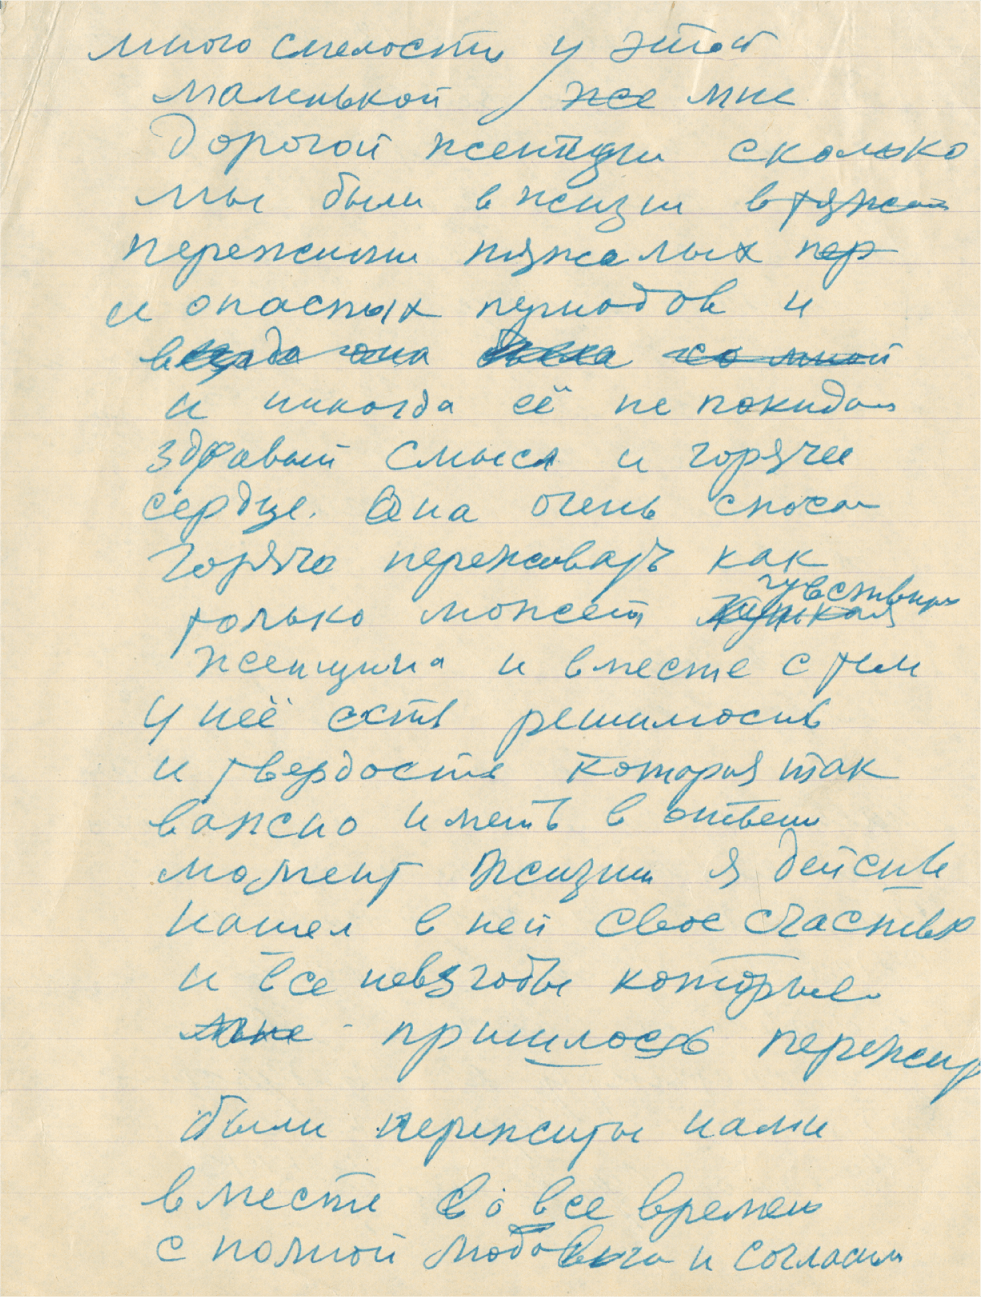 много смелости у этой
маленькой же мне
дорогой женщи сколько
мы были в жизни в тяжел
пережили тяжелых пер
и опасных периодов и
всегда она была со мной
и никогда её не покидал
здравый смысл и горячее
сердце. Она очень способ
горячо переживать как
только может чувствител
женщина и вместе с тем
у неё есть решимость
и твердость которая так
важно иметь в ответ
момент жизни я действ
нашел в ней свое счастье
и все невзгоды которые
мне пришлось пережит
были пережиты нами
вместе во все времен
с полной любовью и согласи